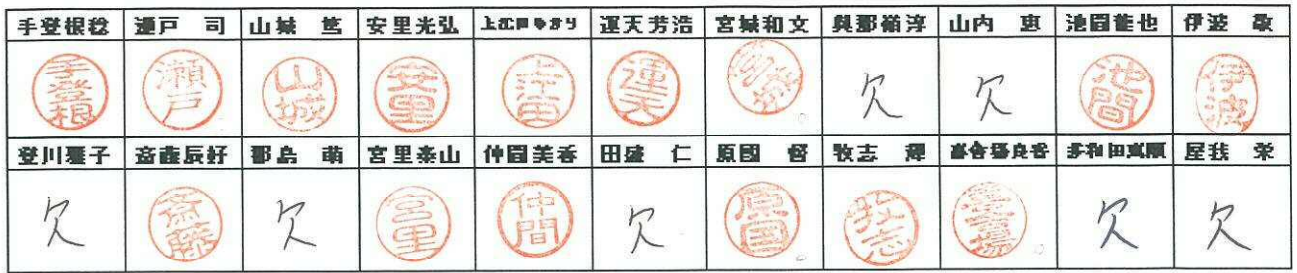 手登根稔 瀬戸 司 山城 篤 安里光弘 上江田ゆかり 運天芳浩 宮城和文 與那嶺淳 山内 恵 池間龍也 伊波 敬
手登根 瀬戸 山城 安里 上江田 運天 宮城 欠 欠 池間 伊波
登川雅子 斎藤辰好 郡島 萌 宮里泰山 仲間美香 田盛 仁 原國 督 牧志 輝 喜舎場良香 多和田真順 屋我 栄
欠 斎藤 欠 宮里 仲間 欠 原国 牧志 喜舎場 欠 欠